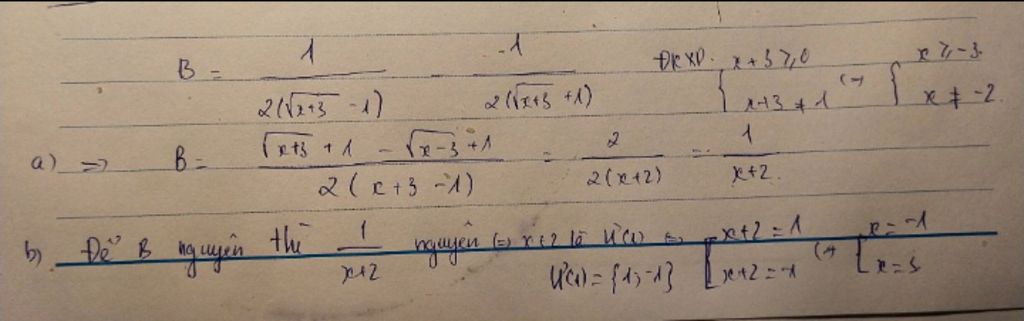 B = 1/(2(√(x+3) - 1)) - 1/(2(√(x+3) + 1)) ĐKXĐ: { x+3 ≥ 0 ; x+3 ≠ 1 (→ { x ≥ -3 ; x ≠ -2.
a) => B = (√(x+3) + 1 - √(x-3) + 1)/(2(x+3 - 1)) = 2/(2(x+2)) = 1/(x+2).
b) Để B nguyên thì 1/(x+2) nguyên (=) x+2 là Ư(1) <=> [ x+2 = 1 ; x+2 = -1 (→ [ x = -1 ; x = 3
Ư(1) = {1; -1}